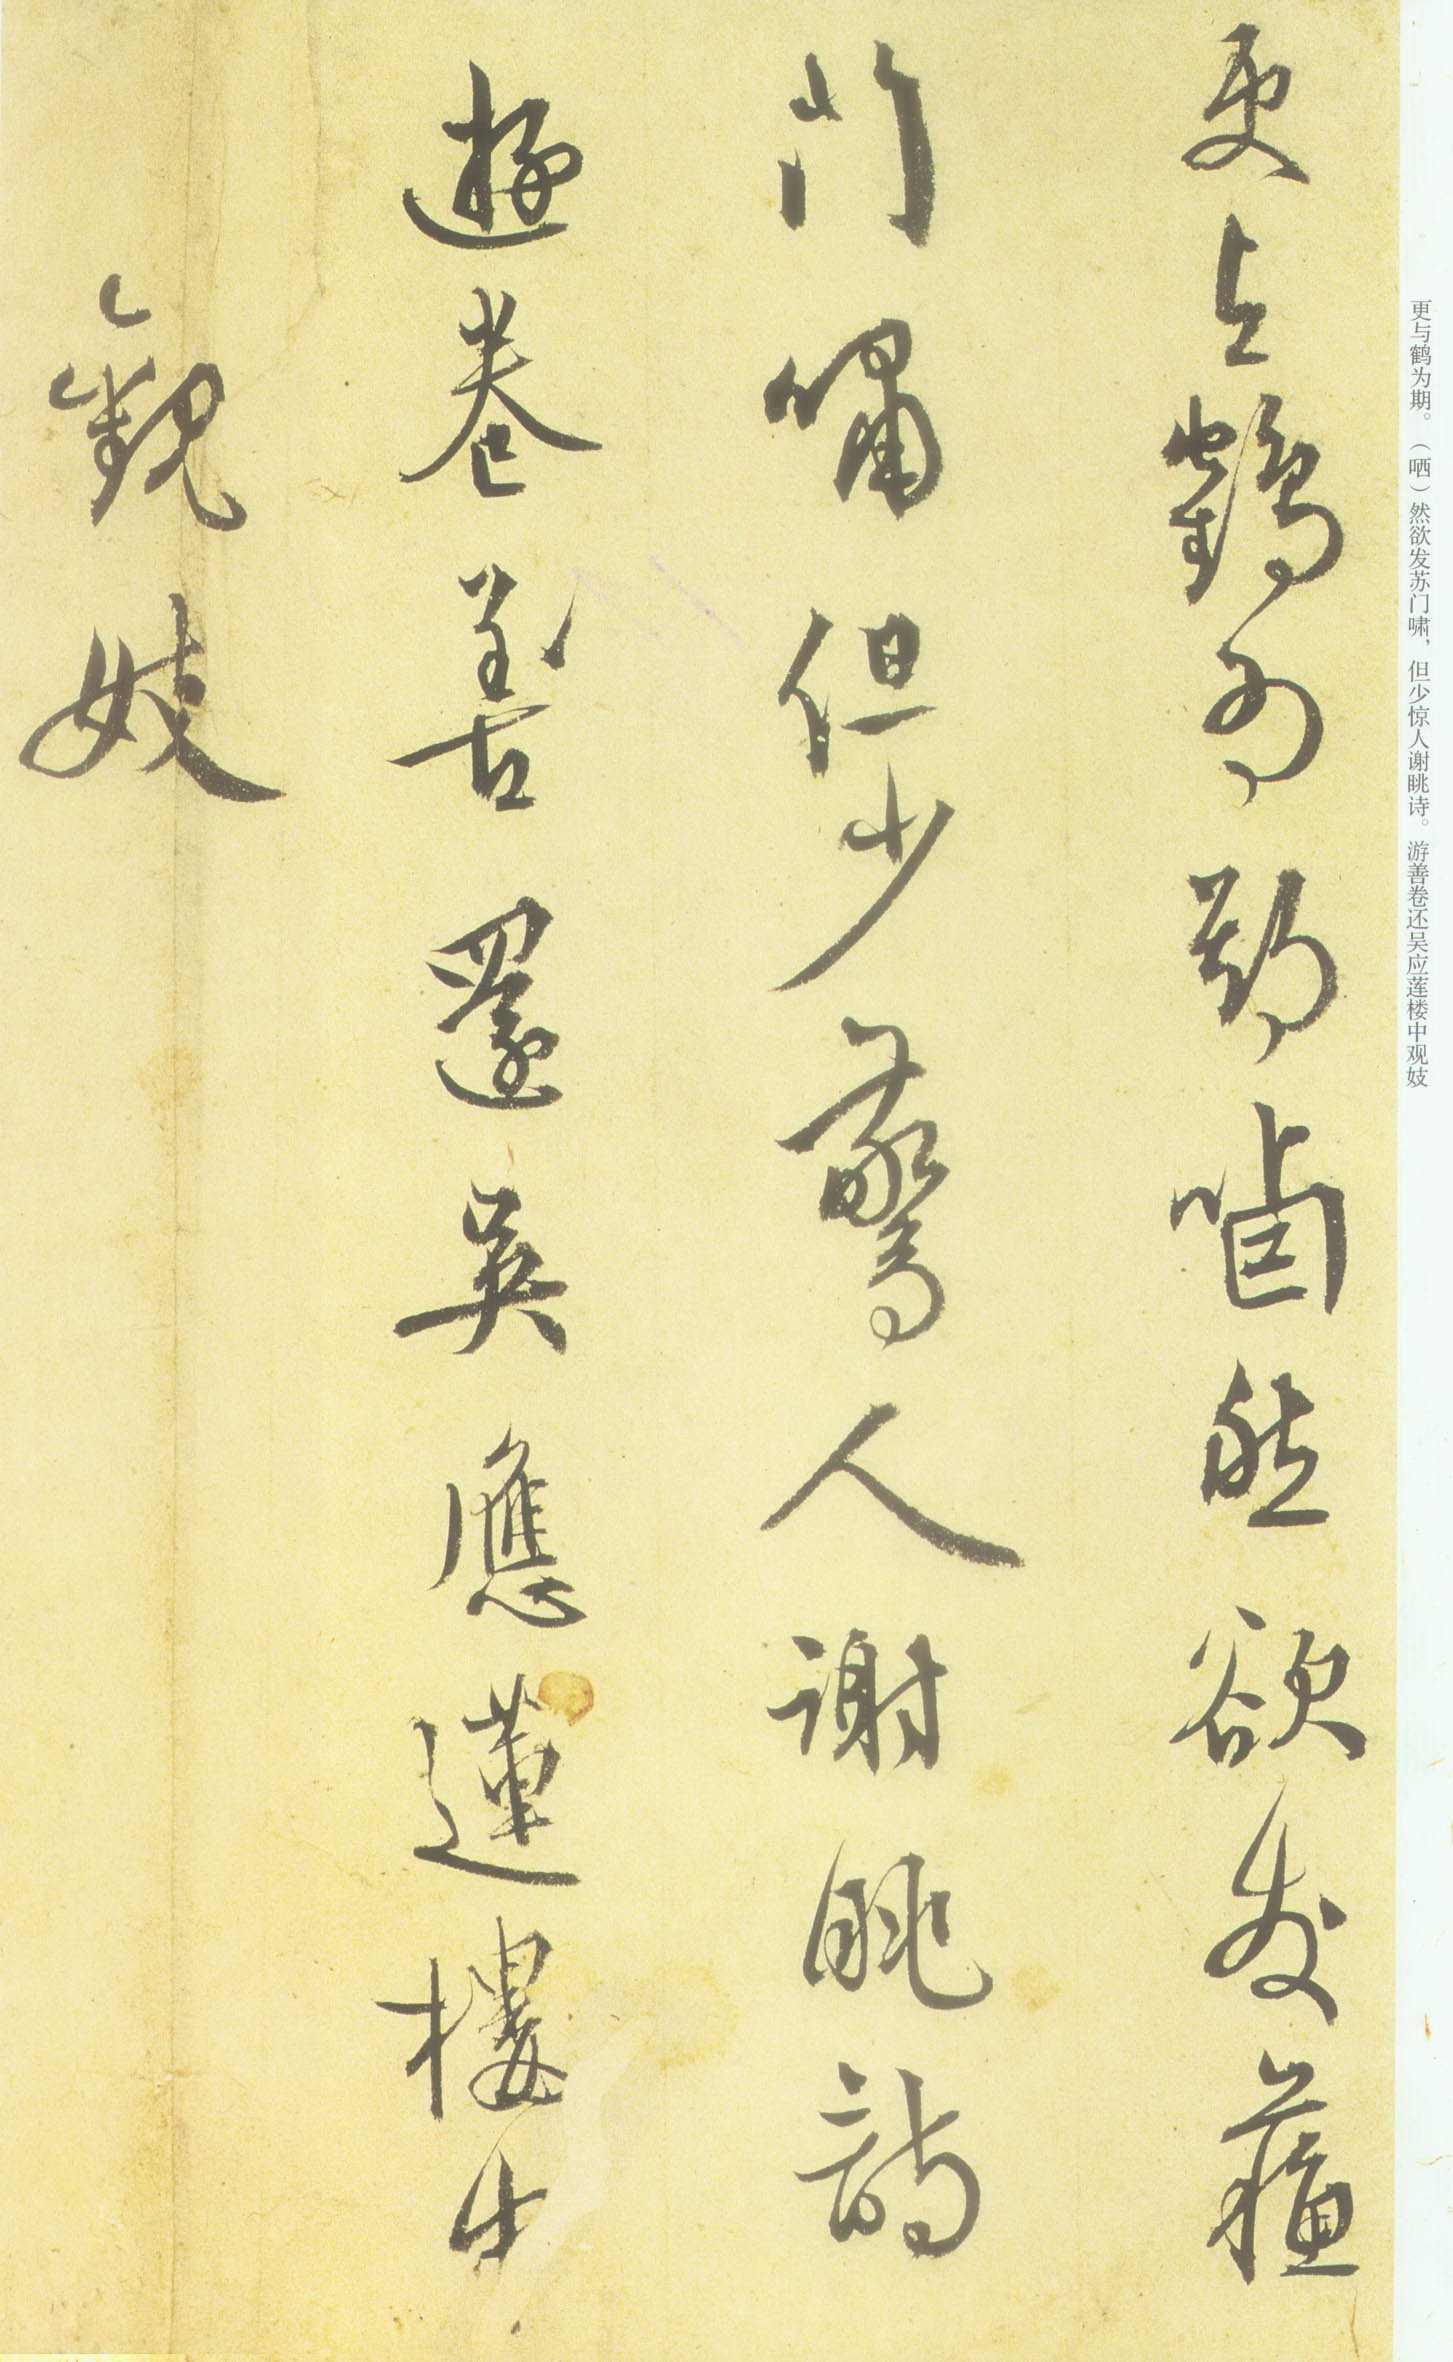 更与鹤为期。（哂）然欲发苏门啸，但少惊人谢眺诗。游善卷还吴应莲楼中观妓
更与鶴為期哂然欲發蘇
門嘯但少驚人謝眺詩
遊卷善還吳應蓮樓中
觀妓